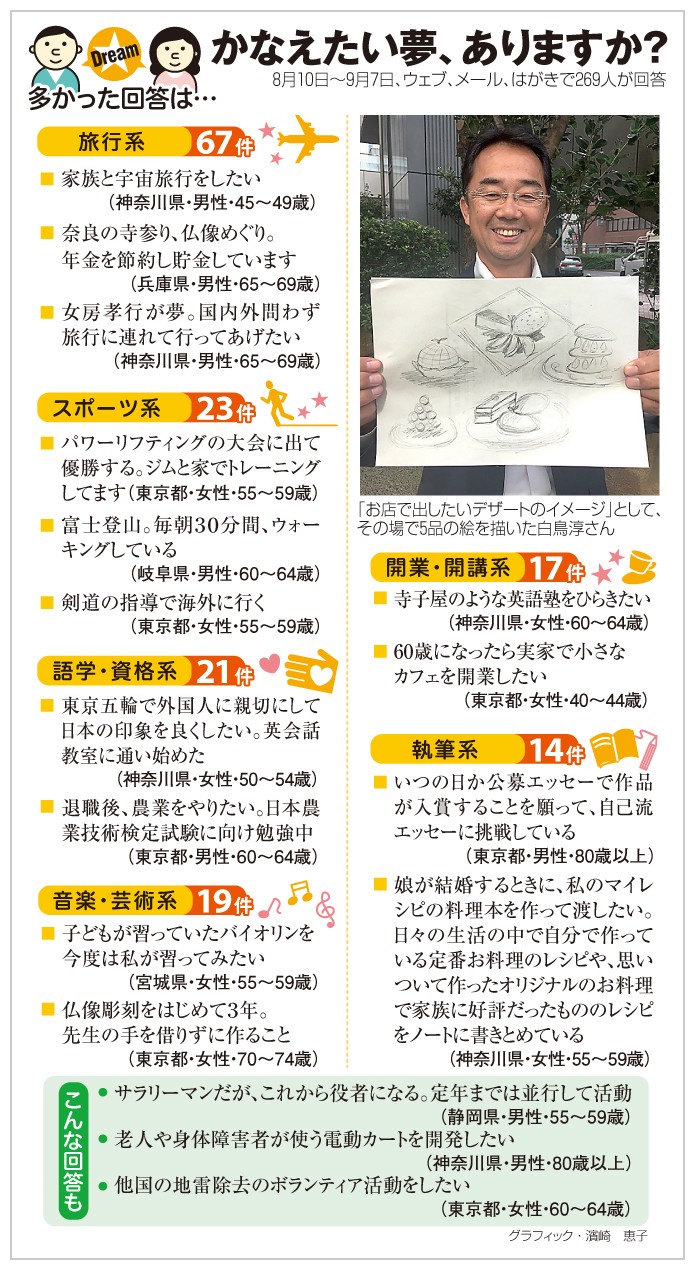 Dream
かなえたい夢、ありますか?
8月10日〜9月7日、ウェブ、メール、はがきで269人が回答
多かった回答は…
旅行系 67件
■ 家族と宇宙旅行をしたい
(神奈川県・男性・45〜49歳)
■ 奈良の寺参り、仏像めぐり。
年金を節約し貯金しています
(兵庫県・男性・65〜69歳)
■ 女房孝行が夢。国内外問わず
旅行に連れて行ってあげたい
(神奈川県・男性・65〜69歳)
スポーツ系 23件
■ パワーリフティングの大会に出て
優勝する。ジムと家でトレーニング
してます(東京都・女性・55〜59歳)
■ 富士登山。毎朝30分間、ウォー
キングしている
(岐阜県・男性・60〜64歳)
■ 剣道の指導で海外に行く
(東京都・女性・55〜59歳)
語学・資格系 21件
■ 東京五輪で外国人に親切にして
日本の印象を良くしたい。英会話
教室に通い始めた
(神奈川県・女性・50〜54歳)
■ 退職後、農業をやりたい。日本農
業技術検定試験に向け勉強中
(東京都・男性・60〜64歳)
音楽・芸術系 19件
■ 子どもが習っていたバイオリンを
今度は私が習ってみたい
(宮城県・女性・55〜59歳)
■ 仏像彫刻をはじめて3年。
先生の手を借りずに作ること
(東京都・女性・70〜74歳)
「お店で出したいデザートのイメージ」として、
その場で5品の絵を描いた白鳥淳さん
開業・開講系 17件
■ 寺子屋のような英語塾をひらきたい
(神奈川県・女性・60〜64歳)
■ 60歳になったら実家で小さな
カフェを開業したい
(東京都・女性・40〜44歳)
執筆系 14件
■ いつの日か公募エッセーで作品
が入賞することを願って、自己流
エッセーに挑戦している
(東京都・男性・80歳以上)
■ 娘が結婚するときに、私のマイレ
シピの料理本を作って渡したい。
日々の生活の中で自分で作って
いる定番お料理のレシピや、思い
ついて作ったオリジナルのお料理
で家族に好評だったもののレシピ
をノートに書きとめている
(神奈川県・女性・55〜59歳)
こんな回答も
● サラリーマンだが、これから役者になる。定年までは並行して活動
(静岡県・男性・55〜59歳)
● 老人や身体障害者が使う電動カートを開発したい
(神奈川県・男性・80歳以上)
● 他国の地雷除去のボランティア活動をしたい
(東京都・女性・60〜64歳)
グラフィック・濱崎 恵子